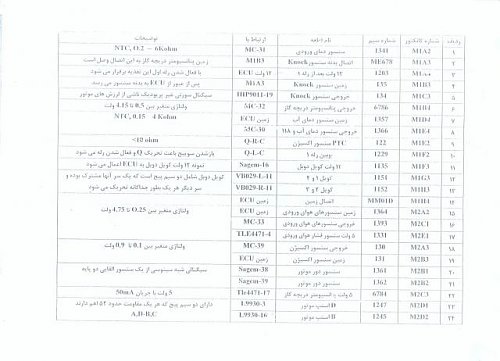 ردیف	شماره کانکتور	شماره سیم	نام قطعه	ارتباط با	توضیحات
۱	M1A2	1341	سنسور دمای ورودی	MC-31	NTC, O.2 – 6Kohm
۲	M1A3	ME678	اتصال بدنه سنسور Knock	M1B3	زمین پتانسیومتر دریچه گاز به این اتصال وصل است
۳	1203	۱۲ ولت بعد از رله	۱۲ ولت ECU	با فعال شدن رله اول این تغذیه برقرار می شود
۴	M1B3	135	زمین سنسور Knock	M1A3	پس از عبور از ECU به بدنه سنسور می رسد
۵	M1C3	134	خروجی سنسور Knock	HIP9011-19	سیگنال سورتی غیر پریودیک ناشی از لرزش های موتور
۶	M1D1	6786	خروجی پتانسیومتر گاز	MC-32	ولتاژی متغیر بین 0.5 تا 4.15 ولت
۷	M1D4	1357	زمین سنسور دمای آب	زمین ECU	NTC, 0.15 4 Kohm
۸	M1E4	1366	خروجی سنسور دمای آب و	35C-30
۹	M1E2	122	سنسور اکسیژن PTC	Q-R-C	<10 ohm
۱۰	M1F2	1229	بوبین رله	Q-L-C	باز شدن سوییچ باعث تحریک Q و فعال شدن رله می شود
۱۱	M1F3	1135	۱۲ ولت کویل دوبل	Sagem-16	نمونه ۱۲ ولت کویل دوبل به ECU اعمال می شود
۱۲	M1G3	1151	کویل ۱ و ۴	VB029-L-11	کویل دوبل شامل دو سیم پیچ است که یک سر آنها مشترک بوده و
۱۳	M1H3	1152	کویل ۲ و ۳	VB029-R-11	سر دیگر هر یک بطور جداگانه تحریک می شود
۱۴	M1H4	MM01D	اتصال زمین	زمین ECU
۱۵	M2A2	1364	زمین سنسورهای هوای ورودی	زمین ECU	ولتاژی متغیر بین O.25 تا 4.75 ولت
۱۶	M2C1	1393	خروجی سنسور هوای ورودی	MC-33
۱۷	M2E1	1331	۵ ولت سنسور فشار هوای ورودی	TLE4471-4
۱۸	M2A3	130	خروجی سنسور اکسیژن	MC-39	ولتاژی متغیر بین 0.1 تا 0.9 ولت
۱۹	M2B3	131	زمین سنسور اکسیژن	زمین ECU
۲۰	M2B1	1361	سنسور دور موتور	Sagem-38	سیگنالی شبه سینوسی از یک سنسور القایی دو پایه
۲۱	M2B2	1362	سنسور دور موتور	Sagem-39
۲۲	M2C3	6784	۵ ولت پتانسیومتر دریچه گاز	Tle4471-17	5 ولت با جریان 50mA
۲۳	M2D1	1247	D استپ موتور	L9930-3	دارای دو سیم پیچ که هر یک مقاومت حدود ۵۲ اهم دارند
۲۴	M2D2	1245	B استپ موتور	L9930-16	A,D-B,C